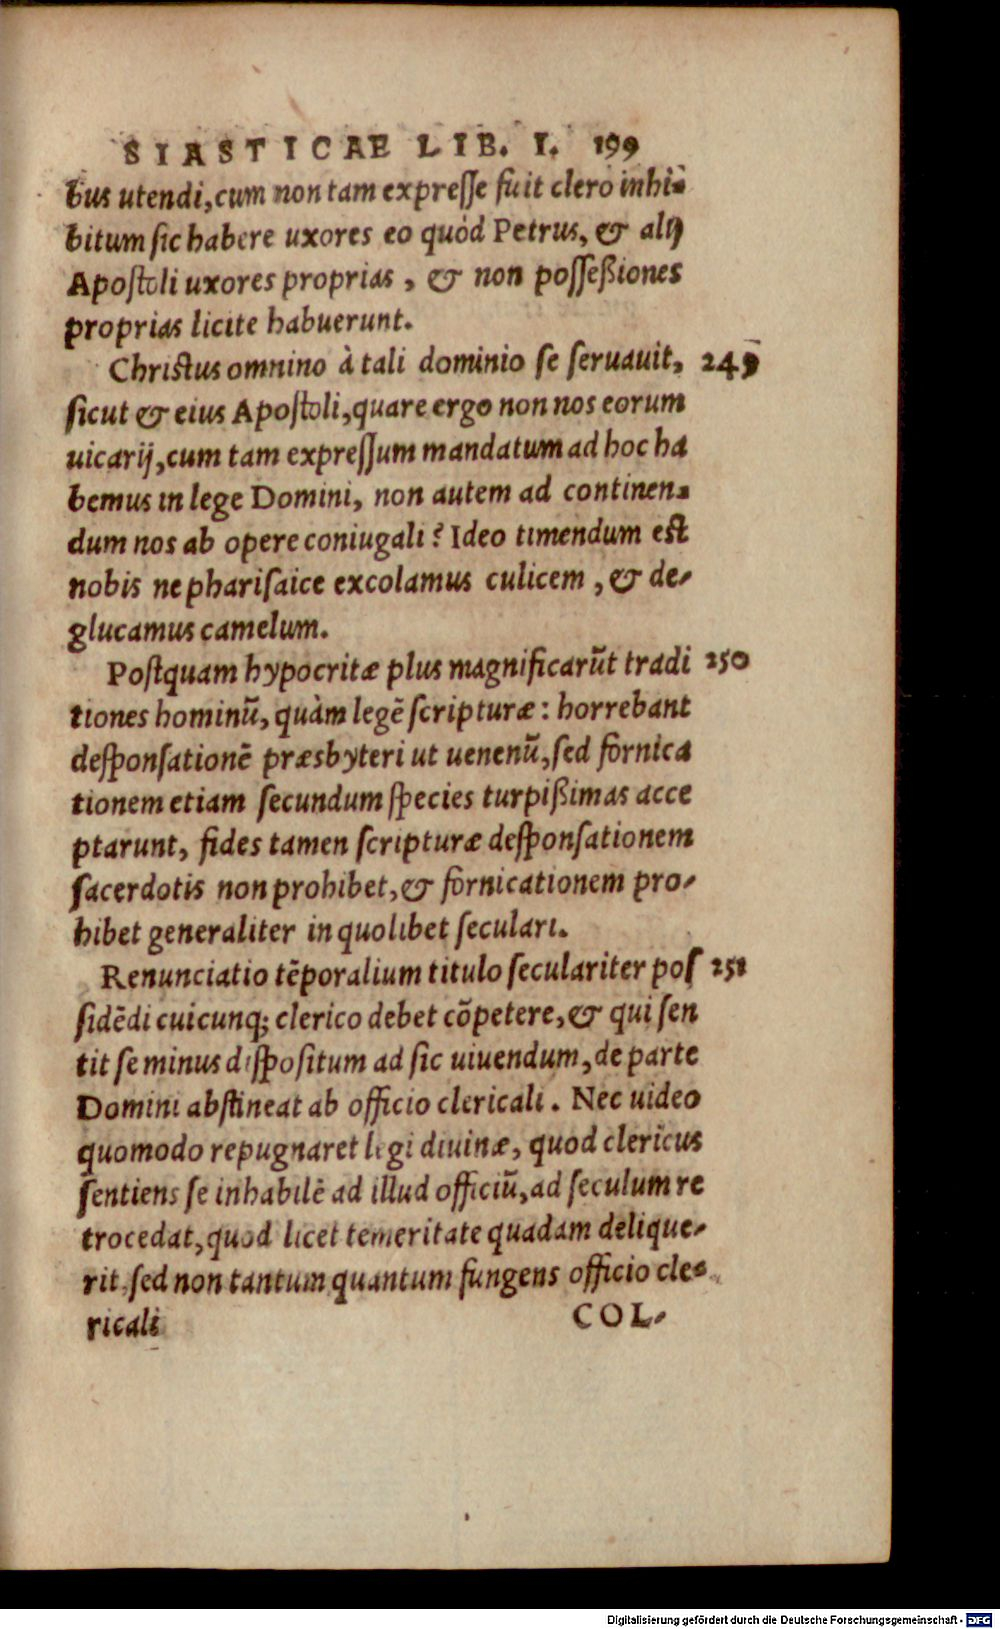 SIASTICAE LIB. I. 199
bus utendi, cum non tam expresse fuit clero inhi-
bitum sic habere uxores eo quòd Petrus, & alij
Apostoli uxores proprias, & non posseßiones
proprias licite habuerunt.
Christus omnino à tali dominio se seruauit, 249
sicut & eius Apostoli, quare ergo non nos eorum
uicarij, cum tam expressum mandatum ad hoc ha
bemus in lege Domini, non autem ad continen-
dum nos ab opere coniugali? Ideo timendum est
nobis ne pharisaice excolamus culicem, & de-
glucamus camelum.
Postquam hypocritæ plus magnificarūt tradi 250
tiones hominū, quàm legē scripturæ: horrebant
desponsationē præsbyteri ut uenenū, sed fornica
tionem etiam secundum species turpißimas acce
ptarunt, fides tamen scripturæ desponsationem
sacerdotis non prohibet, & fornicationem pro-
hibet generaliter in quolibet seculari.
Renunciatio tēporalium titulo seculariter pos 251
sidēdi cuicunq; clerico debet cōpetere, & qui sen
tit se minus dispositum ad sic uiuendum, de parte
Domini abstineat ab officio clericali. Nec uideo
quomodo repugnaret legi diuinæ, quod clericus
sentiens se inhabilē ad illud officiū, ad seculum re
trocedat, quod licet temeritate quadam delique-
rit, sed non tantum quantum fungens officio cle-
ricali COL-
Digitalisierung gefördert durch die Deutsche Forschungsgemeinschaft - DFG